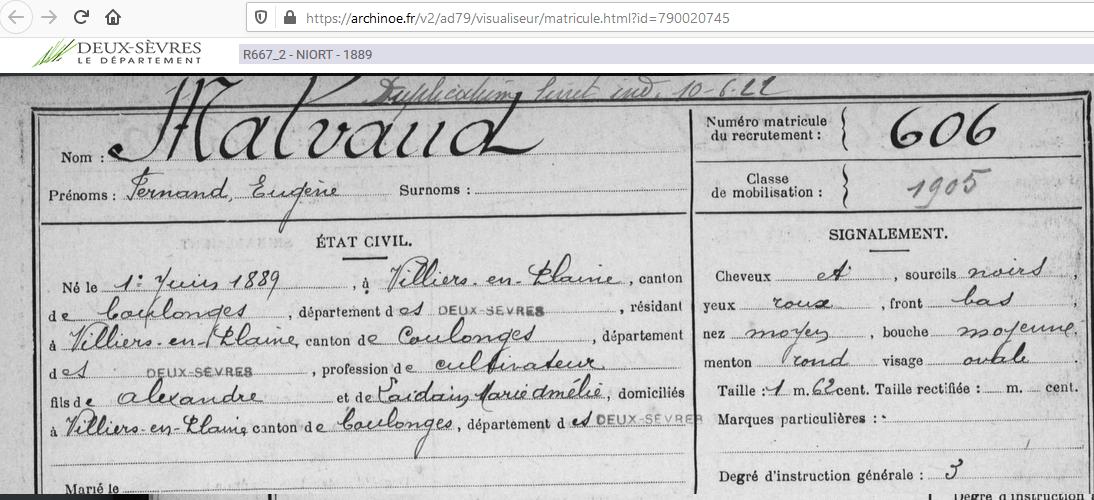 https://archinoe.fr/v2/ad79/visualiseur/matricule.html?id=790020745
DEUX-SÈVRES
LE DÉPARTEMENT
R667_2 - NIORT - 1889
Duplication livret ind. 10-6-22
Nom : Malvaud
Prénoms : Fernand, Eugène Surnoms :
Numéro matricule du recrutement : 606
Classe de mobilisation : 1905
ÉTAT CIVIL.
Né le 1er Juin 1889, à Villiers-en-Plaine, canton
de Coulonges, département des DEUX-SÈVRES, résidant
à Villiers-en-Plaine, canton de Coulonges, département
des DEUX-SÈVRES, profession de cultivateur
fils de alexandre et de Marie amélie, domiciliés
à Villiers-en-Plaine, canton de Coulonges, département des DEUX-SÈVRES
Marié le
SIGNALEMENT.
Cheveux et, sourcils noirs,
yeux roux, front bas,
nez moyen, bouche moyenne,
menton rond visage ovale.
Taille : 1 m. 62 cent. Taille rectifiée : m. cent.
Marques particulières :
Degré d'instruction générale : 3
Degré d'instruction